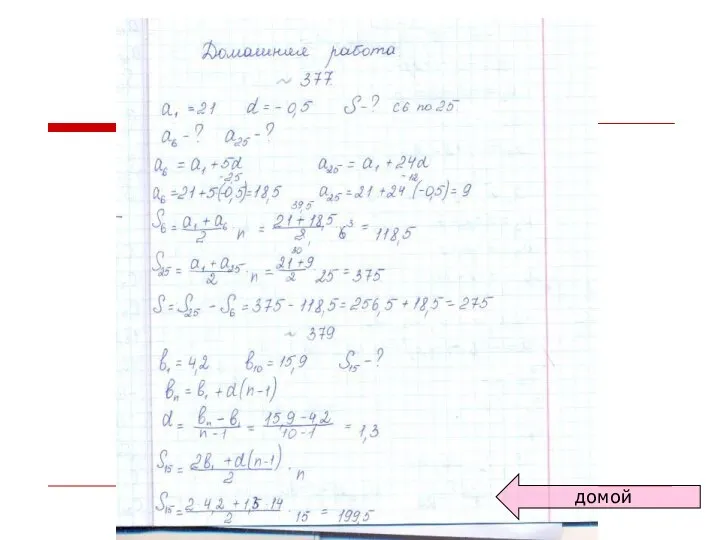 Домашняя работа.
~ 377.
a₁ = 21 d = - 0,5 S - ? с 6 по 25.
a₆ - ? a₂₅ - ?
a₆ = a₁ + 5d a₂₅ = a₁ + 24d
-2,5 -12
a₆ = 21 + 5(-0,5) = 18,5 a₂₅ = 21 + 24 (-0,5) = 9
39,5
S₆ = a₁ + a₆ / 2 · n = 21 + 18,5 / 2, · 6³ = 118,5
30
S₂₅ = a₁ + a₂₅ / 2 · n = 21 + 9 / 2 · 25 = 375
S = S₂₅ - S₆ = 375 - 118,5 = 256,5 + 18,5 = 275
~ 379
b₁ = 4,2 b₁₀ = 15,9 S₁₅ - ?
bₙ = b₁ + d(n-1)
d = bₙ - b₁ / n - 1 = 15,9 - 4,2 / 10 - 1 = 1,3
S₁₅ = 2b₁ + d(n-1) / 2 · n
S₁₅ = 2·4,2 + 1,3·14 / 2 · 15 = 199,5
домой